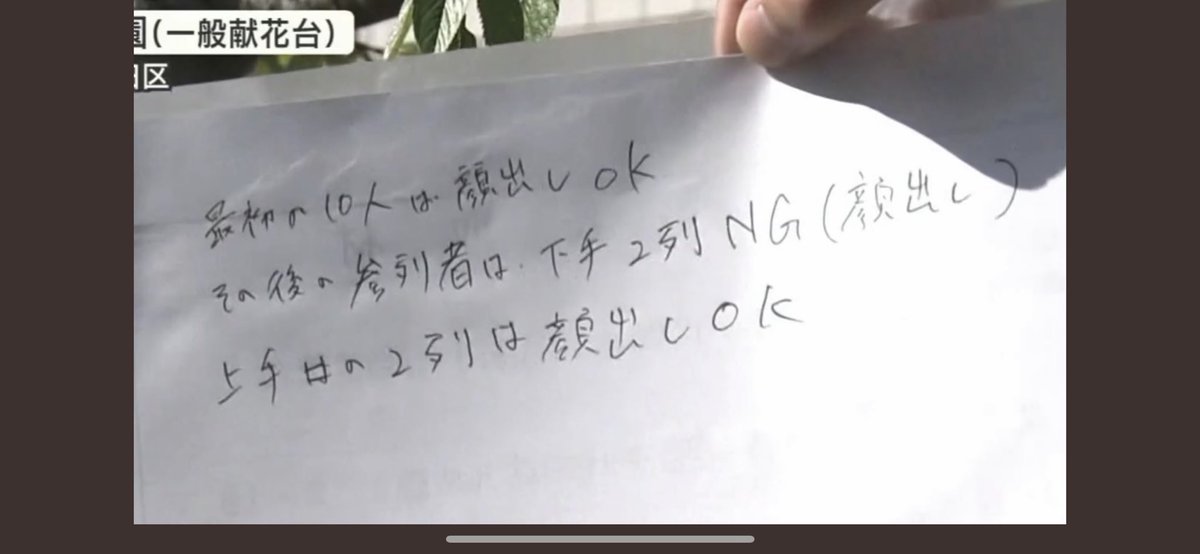 園(一般献花台)
田区
最初の10人は顔出しOK
その後の参列者は、下手2列NG(顔出し)
上手はの2列は顔出しOK